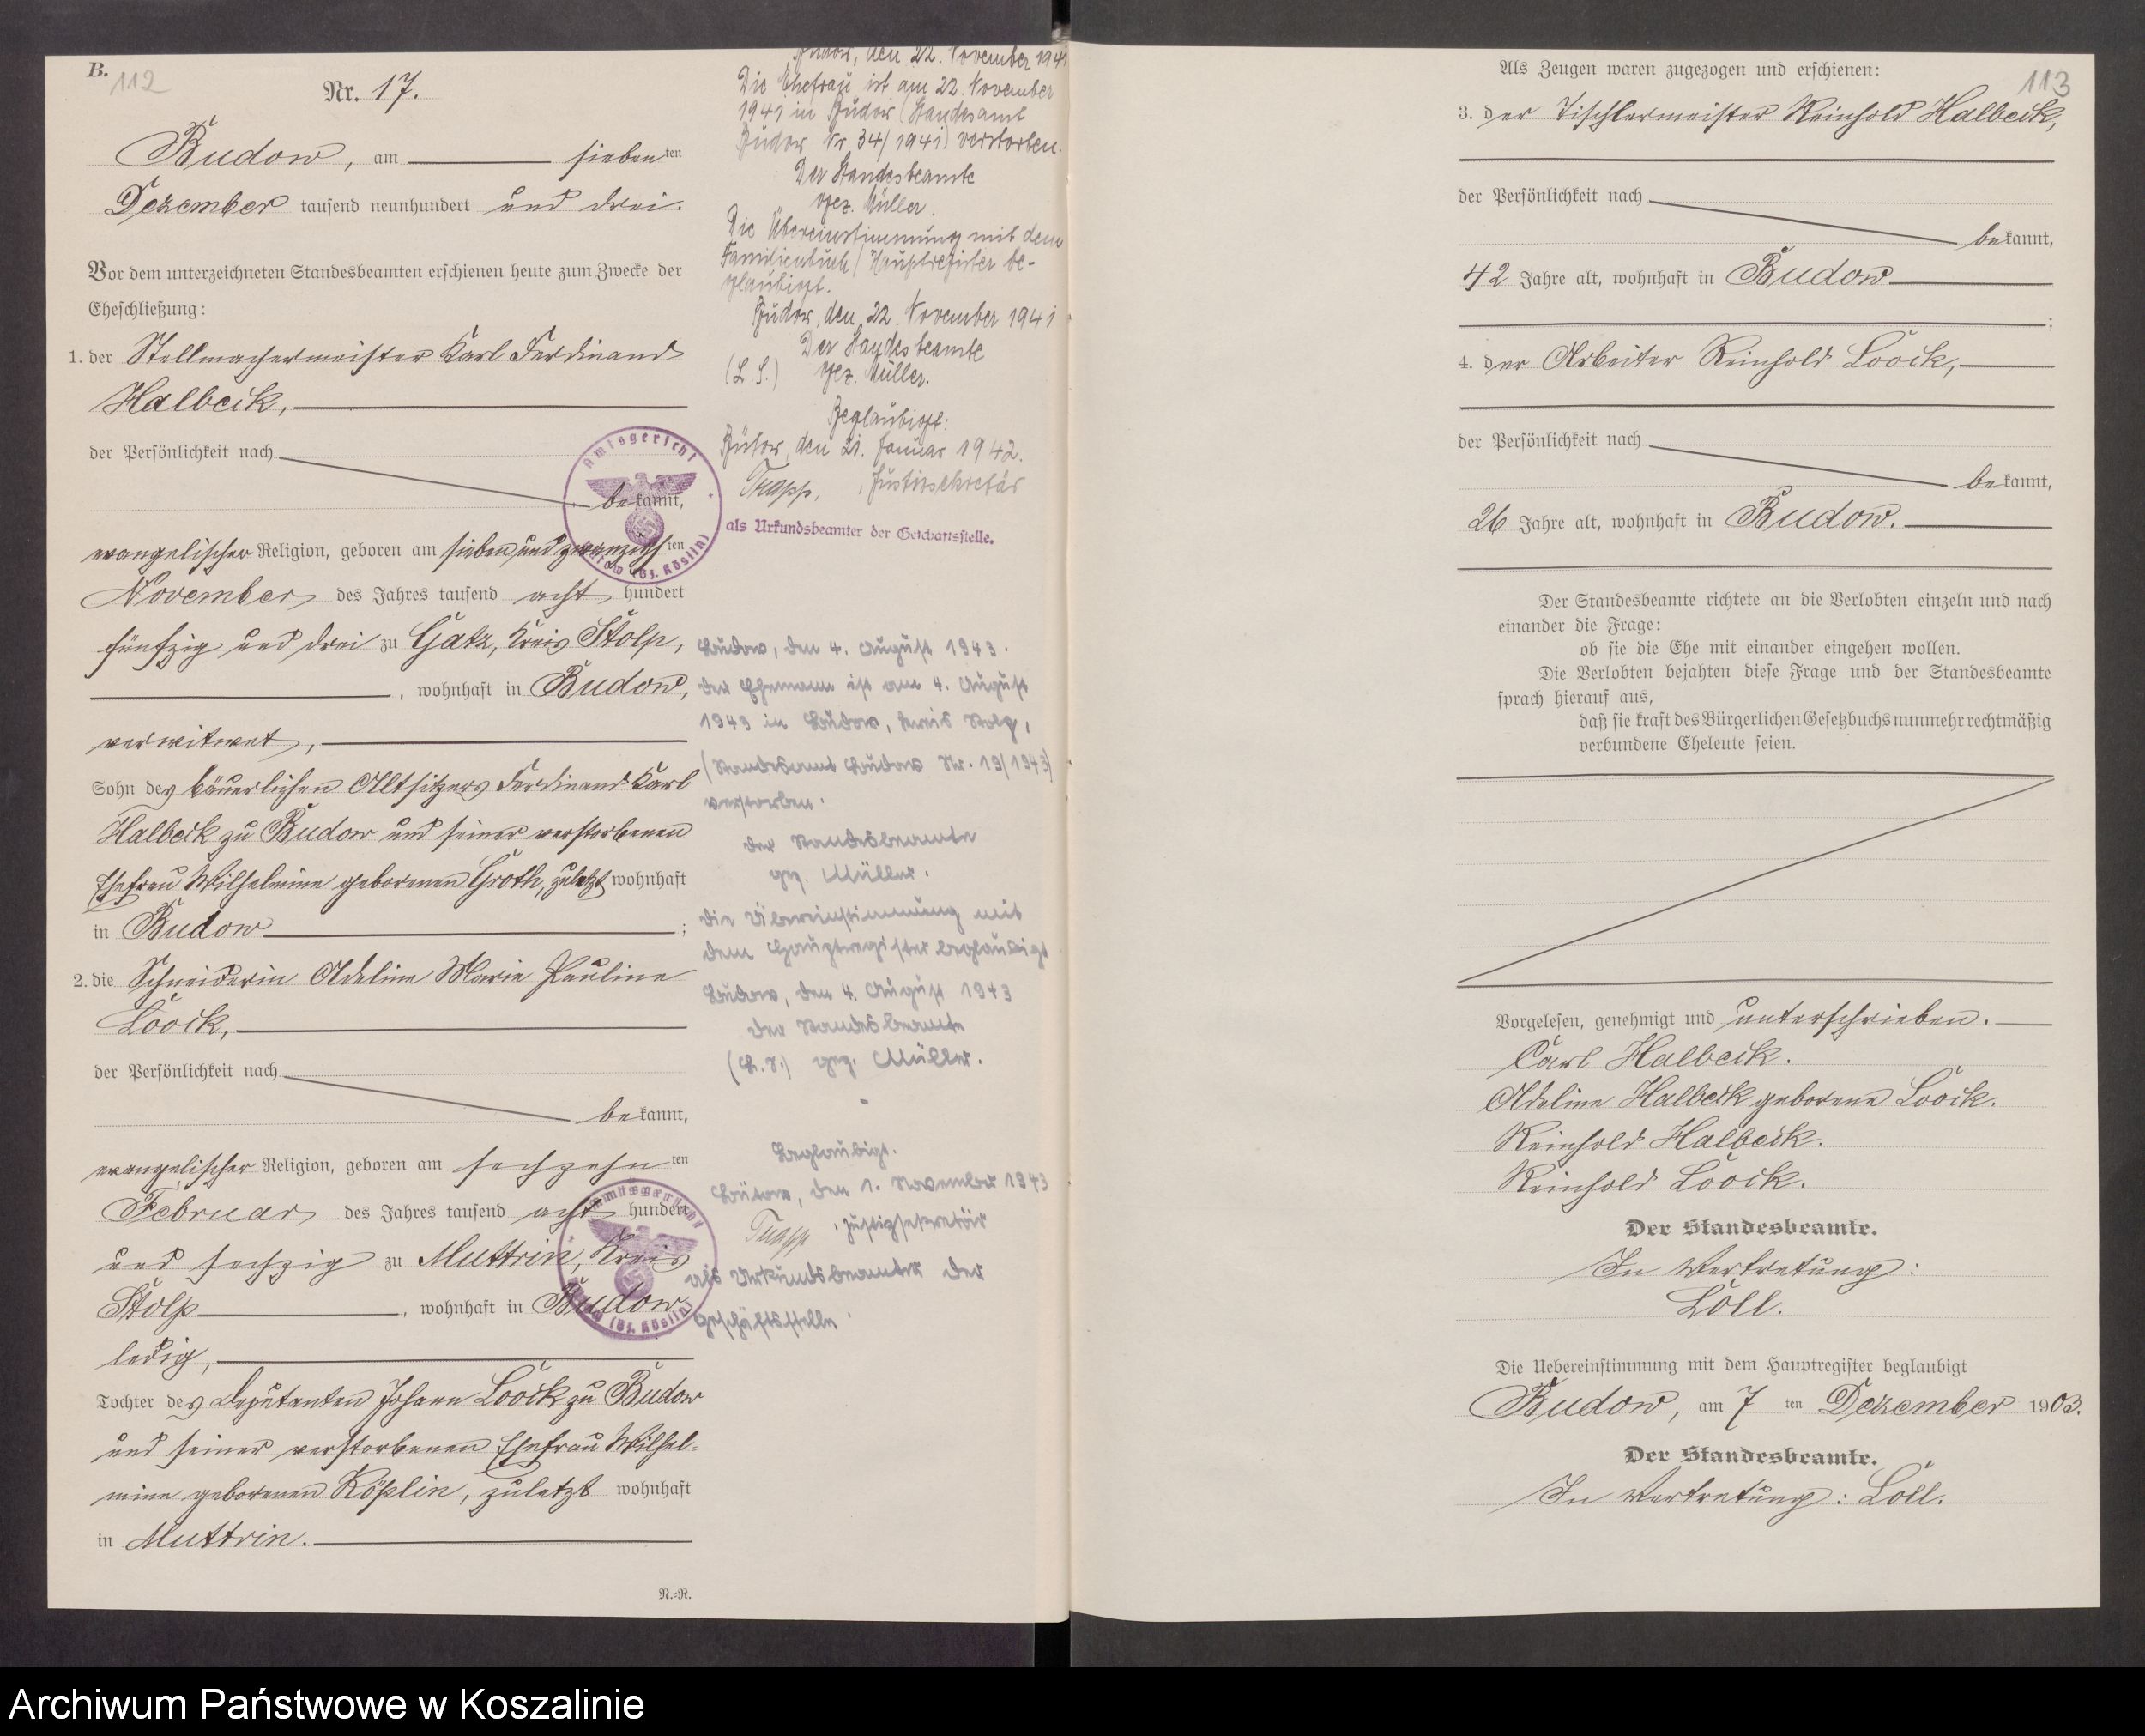 B.
112
Nr. 17.
Budow, am siebenten
Dezember tausend neunhundert und drei.
Vor dem unterzeichneten Standesbeamten erschienen heute zum Zwecke der
Eheschließung:
1. der Stellmachermeister Karl Ferdinand
Halbeck,
der Persönlichkeit nach
bekannt,
evangelischer Religion, geboren am sieben und zwanzigsten
November des Jahres tausend acht hundert
fünfzig und drei zu Gatz, Kreis Stolp,
, wohnhaft in Budow,
verwitwet,
Sohn des bäuerlichen Altsitzers Ferdinand Karl
Halbeck zu Budow und seiner verstorbenen
Ehefrau Wilhelmine geborenen Groth, zuletzt wohnhaft
in Budow ;
2. die Schneiderin Adeline Marie Pauline
Loock,
der Persönlichkeit nach
bekannt,
evangelischer Religion, geboren am sechzehnten
Februar des Jahres tausend acht hundert
und sechzig zu Muttrin, Kreis
Stolp , wohnhaft in Budow
ledig,
Tochter des Deputanten Johann Loock zu Budow
und seiner verstorbenen Ehefrau Wilhel-
mine geborenen Köplin, zuletzt wohnhaft
in Muttrin.
N.=N.
Budow, den 22. November 1941
Die Ehefrau ist am 22. November
1941 in Budow (Standesamt
Budow Nr. 34/1941) verstorben.
Der Standesbeamte
gez. Müller.
Die Übereinstimmung mit dem
Familienbuch/Hauptregister be-
glaubigt.
Budow, den 22. November 1941
Der Standesbeamte
(L.S.) gez. Müller.
Beglaubigt:
Bütow, den 21. Januar 1942.
Trapp, Justizsekretär
als Urkundsbeamter der Geschäftsstelle.
Amtsgericht
Bütow (Bz. Köslin)
Budow, den 4. August 1943.
Der Ehemann ist am 4. August
1943 in Budow, Kreis Stolp,
(Standesamt Budow Nr. 19/1943)
verstorben.
Der Standesbeamte
gez. Müller.
Die Übereinstimmung mit
dem Hauptregister beglaubigt
Budow, den 4. August 1943
Der Standesbeamte
(L.S.) gez. Müller.
Beglaubigt.
Bütow, den 1. November 1943
Trapp, Justizsekretär
als Urkundsbeamter der
Geschäftsstelle.
Amtsgericht
Bütow (Bz. Köslin)
113
Als Zeugen waren zugezogen und erschienen:
3. der Tischlermeister Reinhold Halbeck,
der Persönlichkeit nach
bekannt,
42 Jahre alt, wohnhaft in Budow
;
4. der Arbeiter Reinhold Loock,
der Persönlichkeit nach
bekannt,
26 Jahre alt, wohnhaft in Budow.
Der Standesbeamte richtete an die Verlobten einzeln und nach
einander die Frage:
ob sie die Ehe mit einander eingehen wollen.
Die Verlobten bejahten diese Frage und der Standesbeamte
sprach hierauf aus,
daß sie kraft des Bürgerlichen Gesetzbuchs nunmehr rechtmäßig
verbundene Eheleute seien.
Vorgelesen, genehmigt und unterschrieben.
Carl Halbeck.
Adeline Halbeck geborene Loock.
Reinhold Halbeck.
Reinhold Loock.
Der Standesbeamte.
In Vertretung:
Löll.
Die Uebereinstimmung mit dem Hauptregister beglaubigt
Budow, am 7 ten Dezember 1903.
Der Standesbeamte.
In Vertretung: Löll.
Archiwum Państwowe w Koszalinie